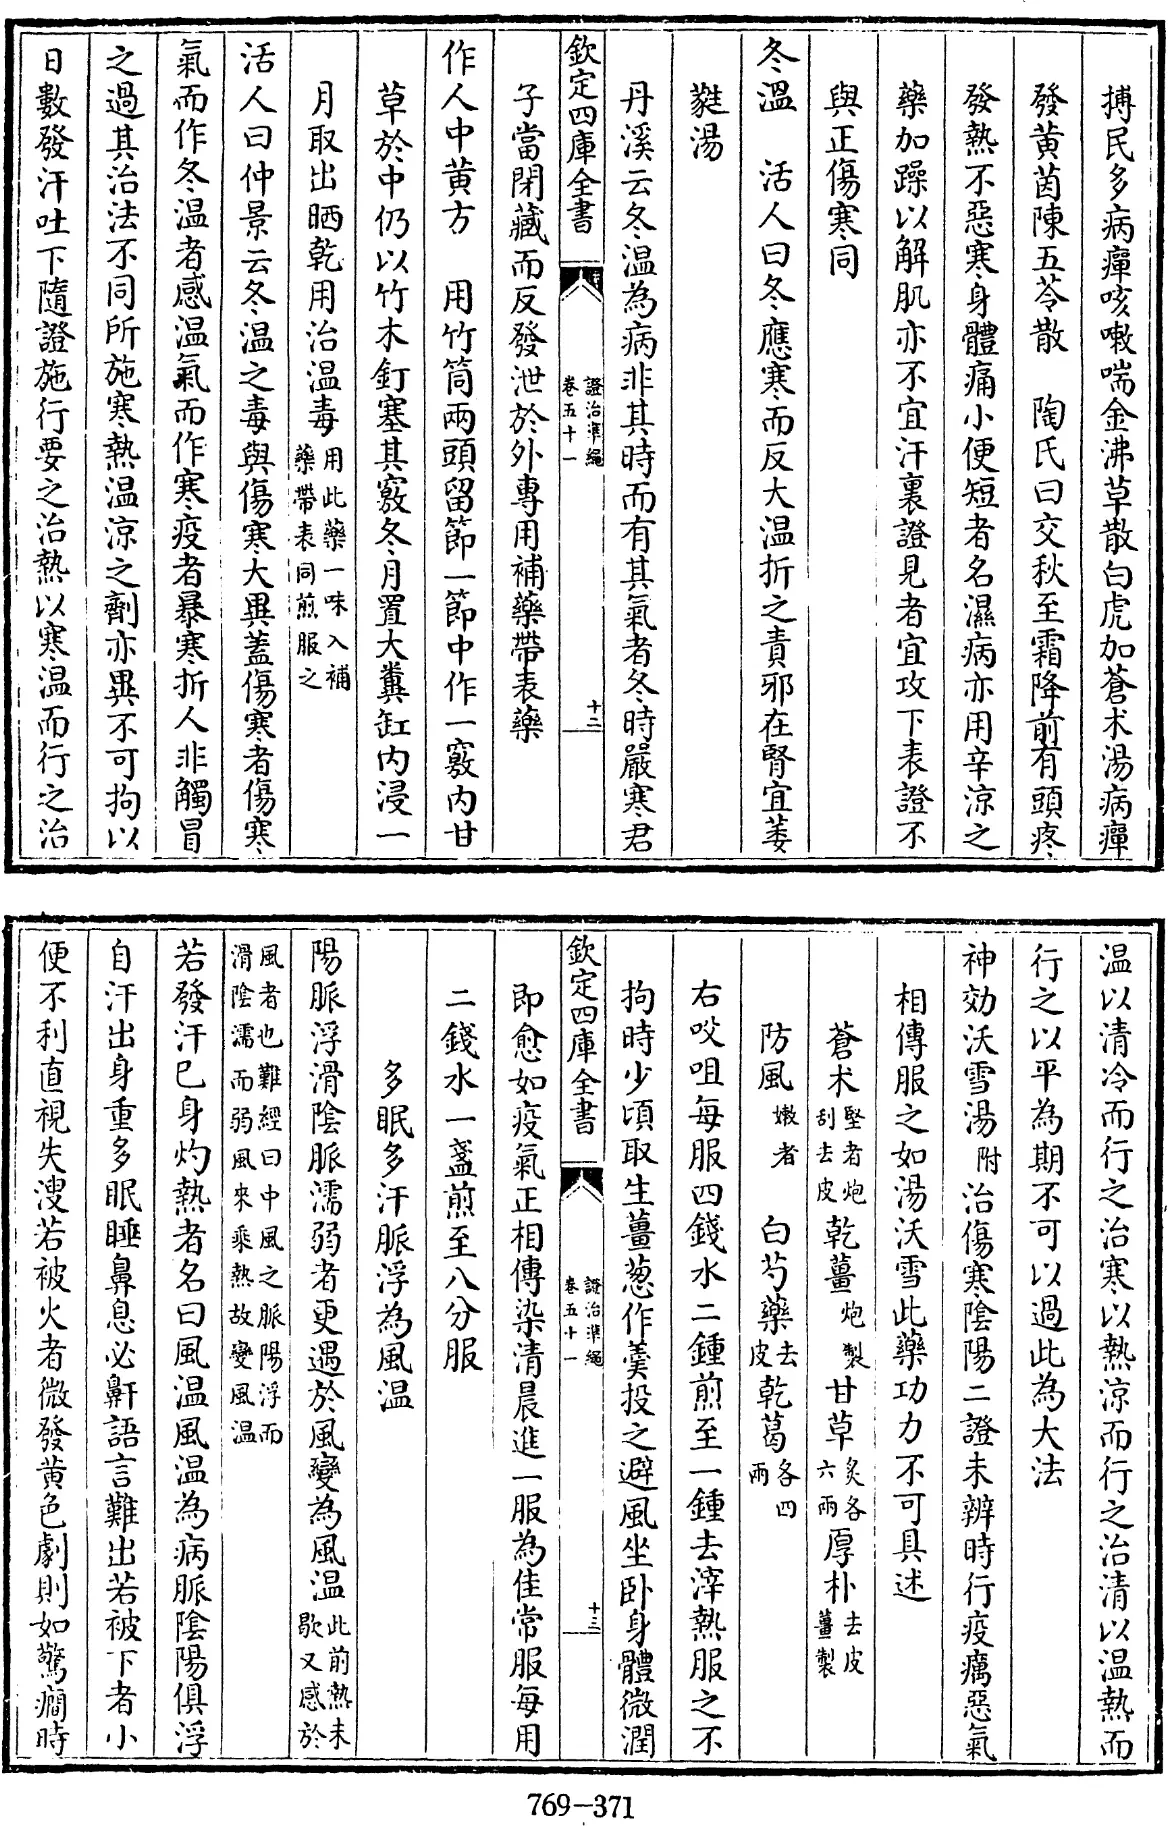 搏民多病癉咳嗽喘金沸草散白虎加蒼术湯病癉
發黄茵陳五苓散 陶氏曰交秋至霜降前有頭疼
發熱不惡寒身體痛小便短者名濕病亦用辛涼之
藥加躁以解肌亦不宜汗裏證見者宜攻下表證不
與正傷寒同
冬溫 活人曰冬應寒而反大温折之責邪在腎宜萎
蕤湯
丹溪云冬温為病非其時而有其氣者冬時嚴寒君
欽定四庫全書 證治準繩 卷五十一 十二
子當閉藏而反發泄於外專用補藥帶表藥
作人中黄方 用竹筒兩頭留節一節中作一竅内甘
草於中仍以竹木釘塞其竅冬月置大糞缸内浸一
月取出晒乾用治温毒用此藥一味入補藥帶表同煎服之
活人曰仲景云冬温之毒與傷寒大異蓋傷寒者傷寒
氣而作冬温者感温氣而作寒疫者暴寒折人非觸冒
之過其治法不同所施寒熱温涼之劑亦異不可拘以
日數發汗吐下隨證施行要之治熱以寒温而行之治
温以清冷而行之治寒以熱涼而行之治清以温熱而
行之以平為期不可以過此為大法
神効沃雪湯附 治傷寒陰陽二證未辨時行疫癘惡氣
相傳服之如湯沃雪此藥功力不可具述
蒼术堅者炮刮去皮 乾薑炮製 甘草炙各六兩 厚朴去皮薑製
防風嫩者 白芍藥去皮 乾葛各四兩
右㕮咀每服四錢水二鍾煎至一鍾去滓熱服之不
拘時少頃取生薑葱作羹投之避風坐卧身體微潤
欽定四庫全書 證治準繩 卷五十一 十三
即愈如疫氣正相傳染清晨進一服為佳常服每用
二錢水一盞煎至八分服
多眠多汗脈浮為風温
陽脈浮滑陰脈濡弱者更遇於風變為風温此前熱未歇又感於
風者也難經曰中風之脈陽浮而滑陰濡而弱風來乘熱故變風温
若發汗已身灼熱者名曰風温風温為病脈陰陽俱浮
自汗出身重多眠睡鼻息必鼾語言難出若被下者小
便不利直視失溲若被火者微發黄色劇則如驚癇時
769-371